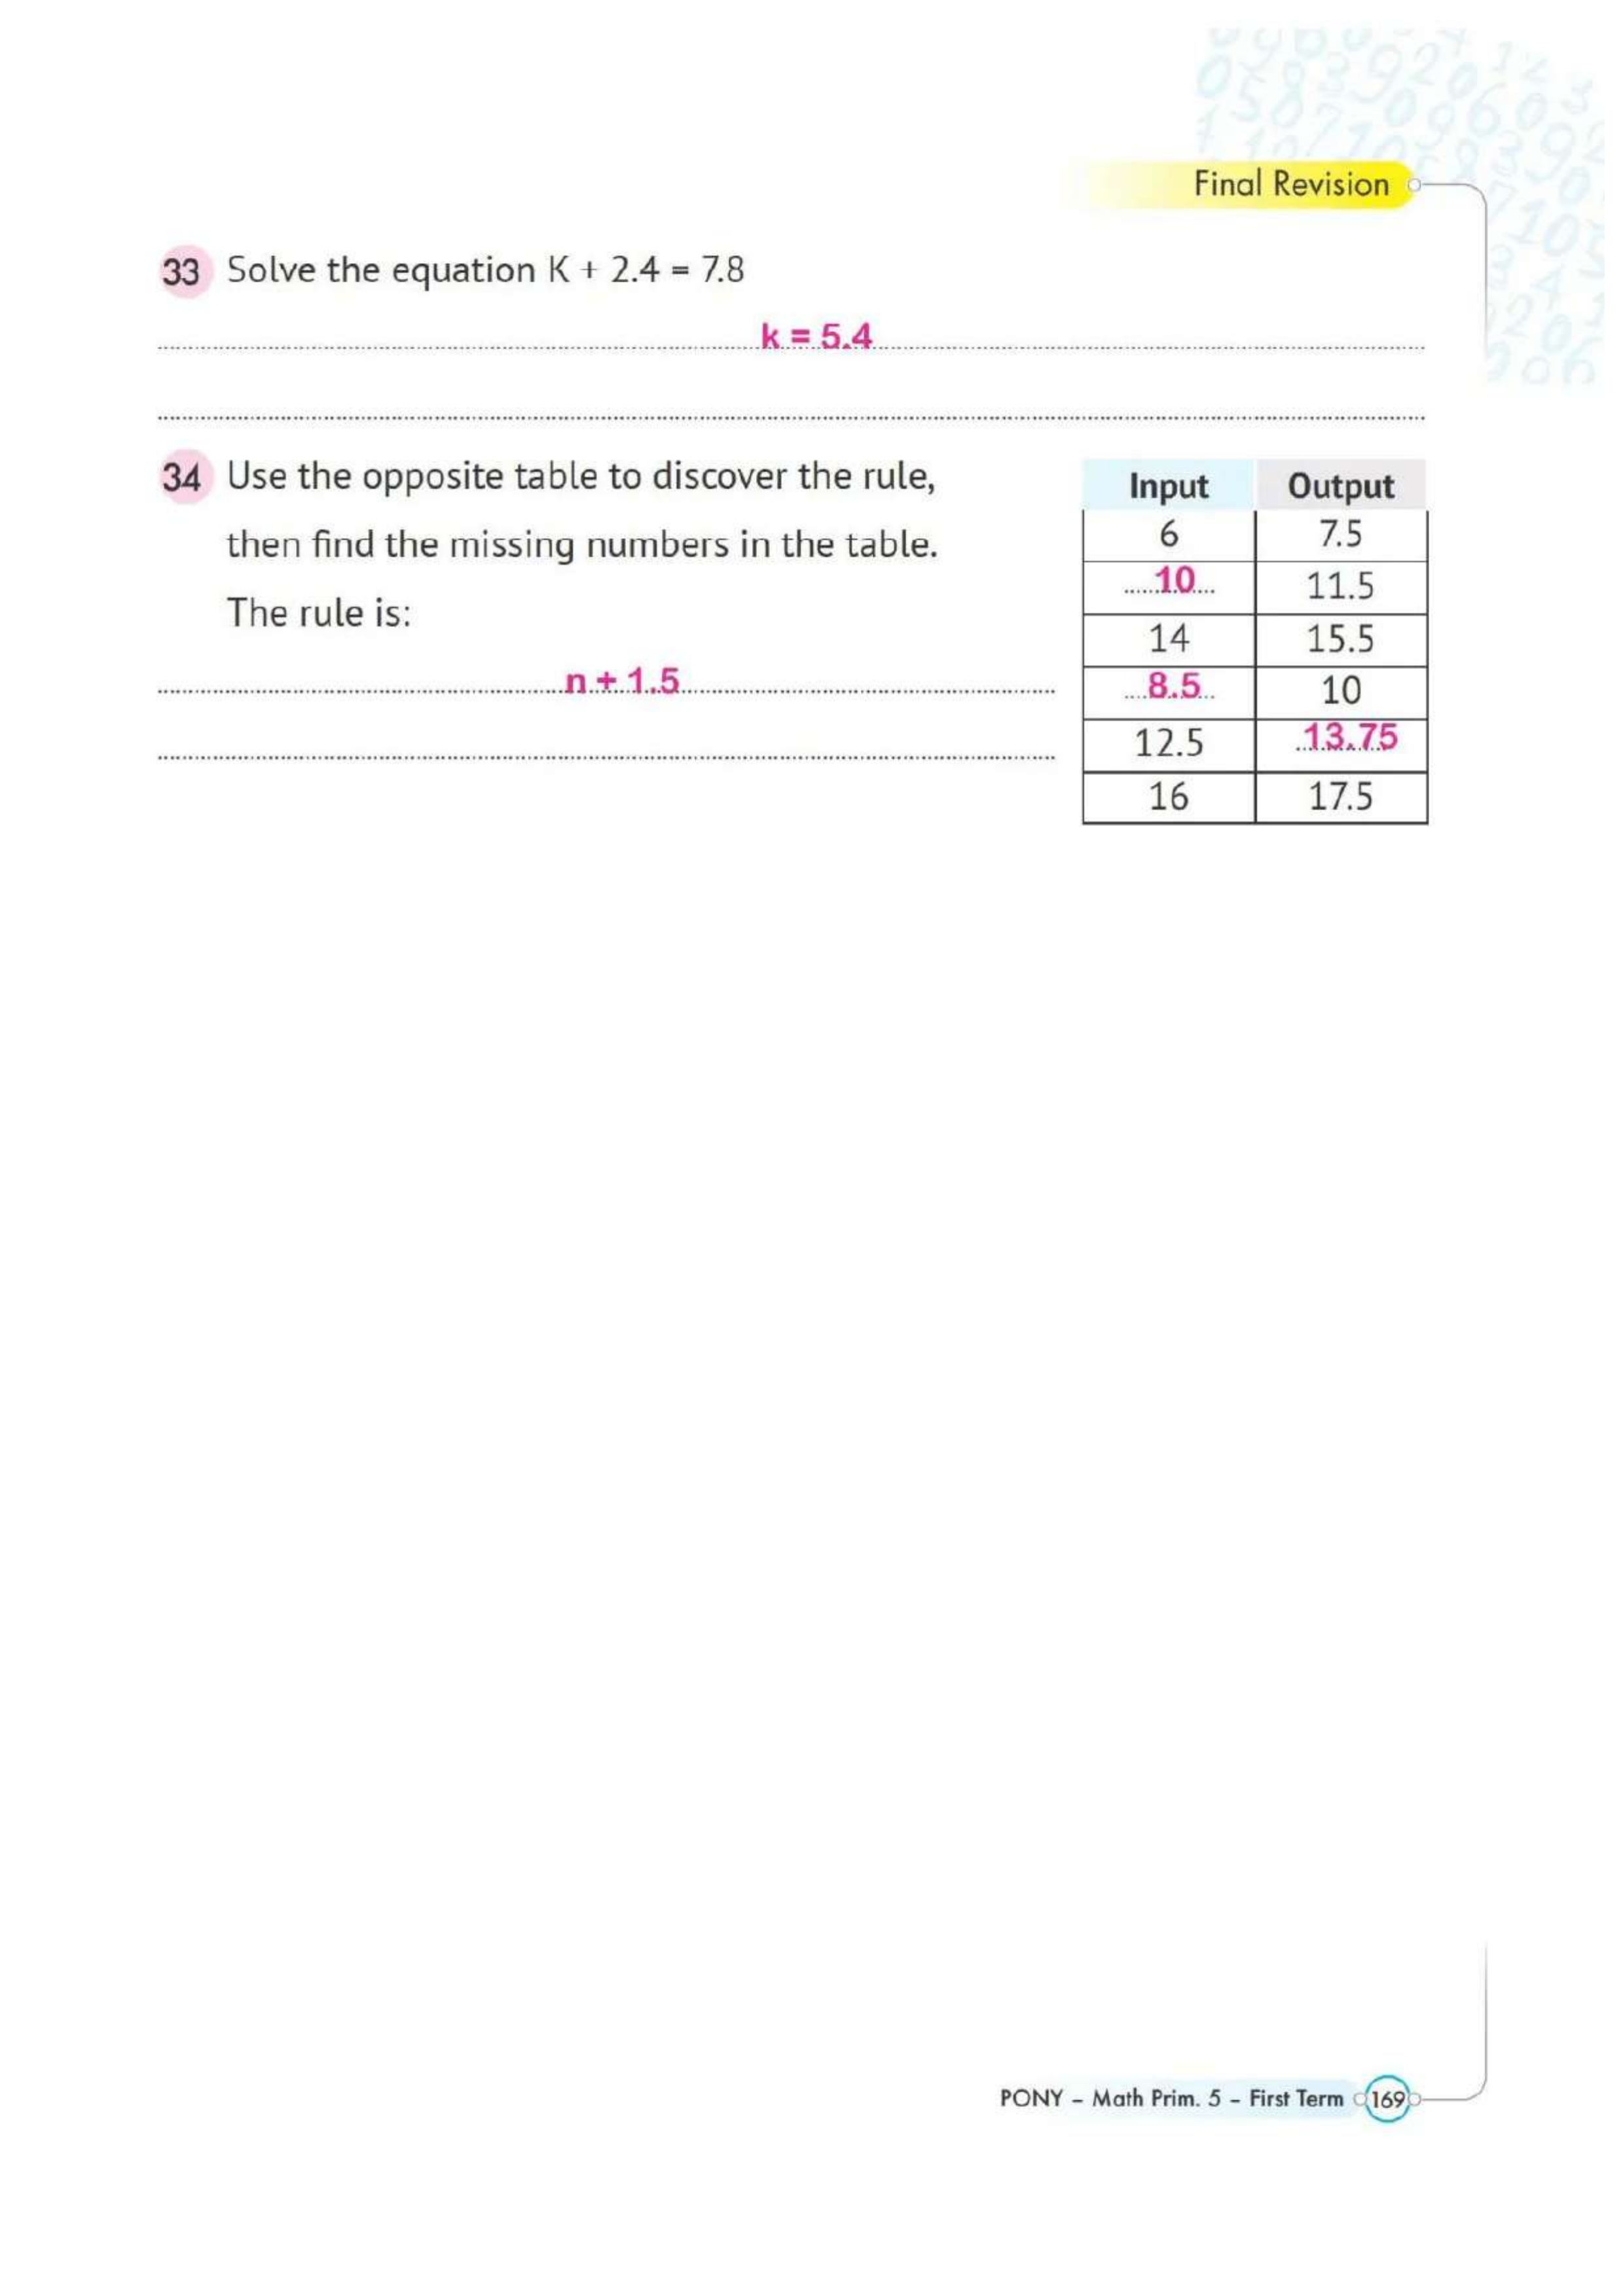 Final Revision
33 Solve the equation K + 2.4 = 7.8
k = 5.4
34 Use the opposite table to discover the rule,
then find the missing numbers in the table.
The rule is:
n + 1.5
Input Output
6 7.5
10 11.5
14 15.5
8.5 10
12.5 13.75
16 17.5
PONY - Math Prim. 5 - First Term 169